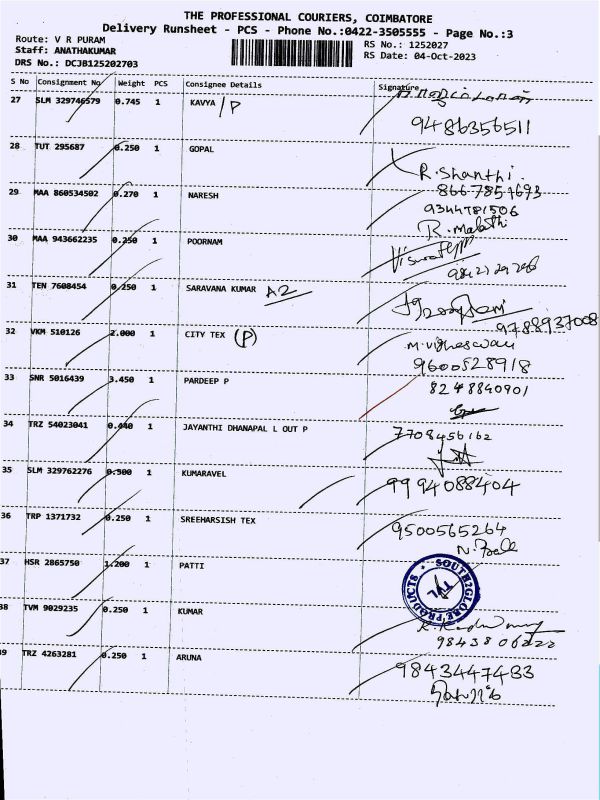 THE PROFESSIONAL COURIERS, COIMBATORE
Delivery Runsheet - PCS - Phone No.:0422-3505555 - Page No.:3
Route: V R PURAM
RS No.: 1252027
Staff: ANATHAKUMAR
RS Date: 04-Oct-2023
DRS No.: DCJB125202703
S No Consignment No Weight PCS Consignee Details Signature
27 SLM 329746579 0.745 1 KAVYA /P
9486356511
28 TUT 295687 0.250 1 GOPAL
R. Shanthi.
29 MAA 860534502 0.270 1 NARESH
8667857693
9344781506
R. Malathi
30 MAA 943662235 0.250 1 POORNAM
31 TEN 7608454 0.250 1 SARAVANA KUMAR A2
9788937008
32 VKM 510126 2.000 1 CITY TEX (P)
M. Vigneswari
9600528918
33 SNR 5016439 3.450 1 PARDEEP P
8248840901
34 TRZ 54023041 0.440 1 JAYANTHI DHANAPAL L OUT P
7708456162
35 SLM 329762276 0.500 1 KUMARAVEL
9994088404
36 TRP 1371732 0.250 1 SREEHARSISH TEX
9500565264
37 HSR 2865750 1.200 1 PATTI
SOUTH2GLOBE PRODUCTS
38 TVM 9029235 0.250 1 KUMAR
9843806222
39 TRZ 4263281 0.250 1 ARUNA
9843447433